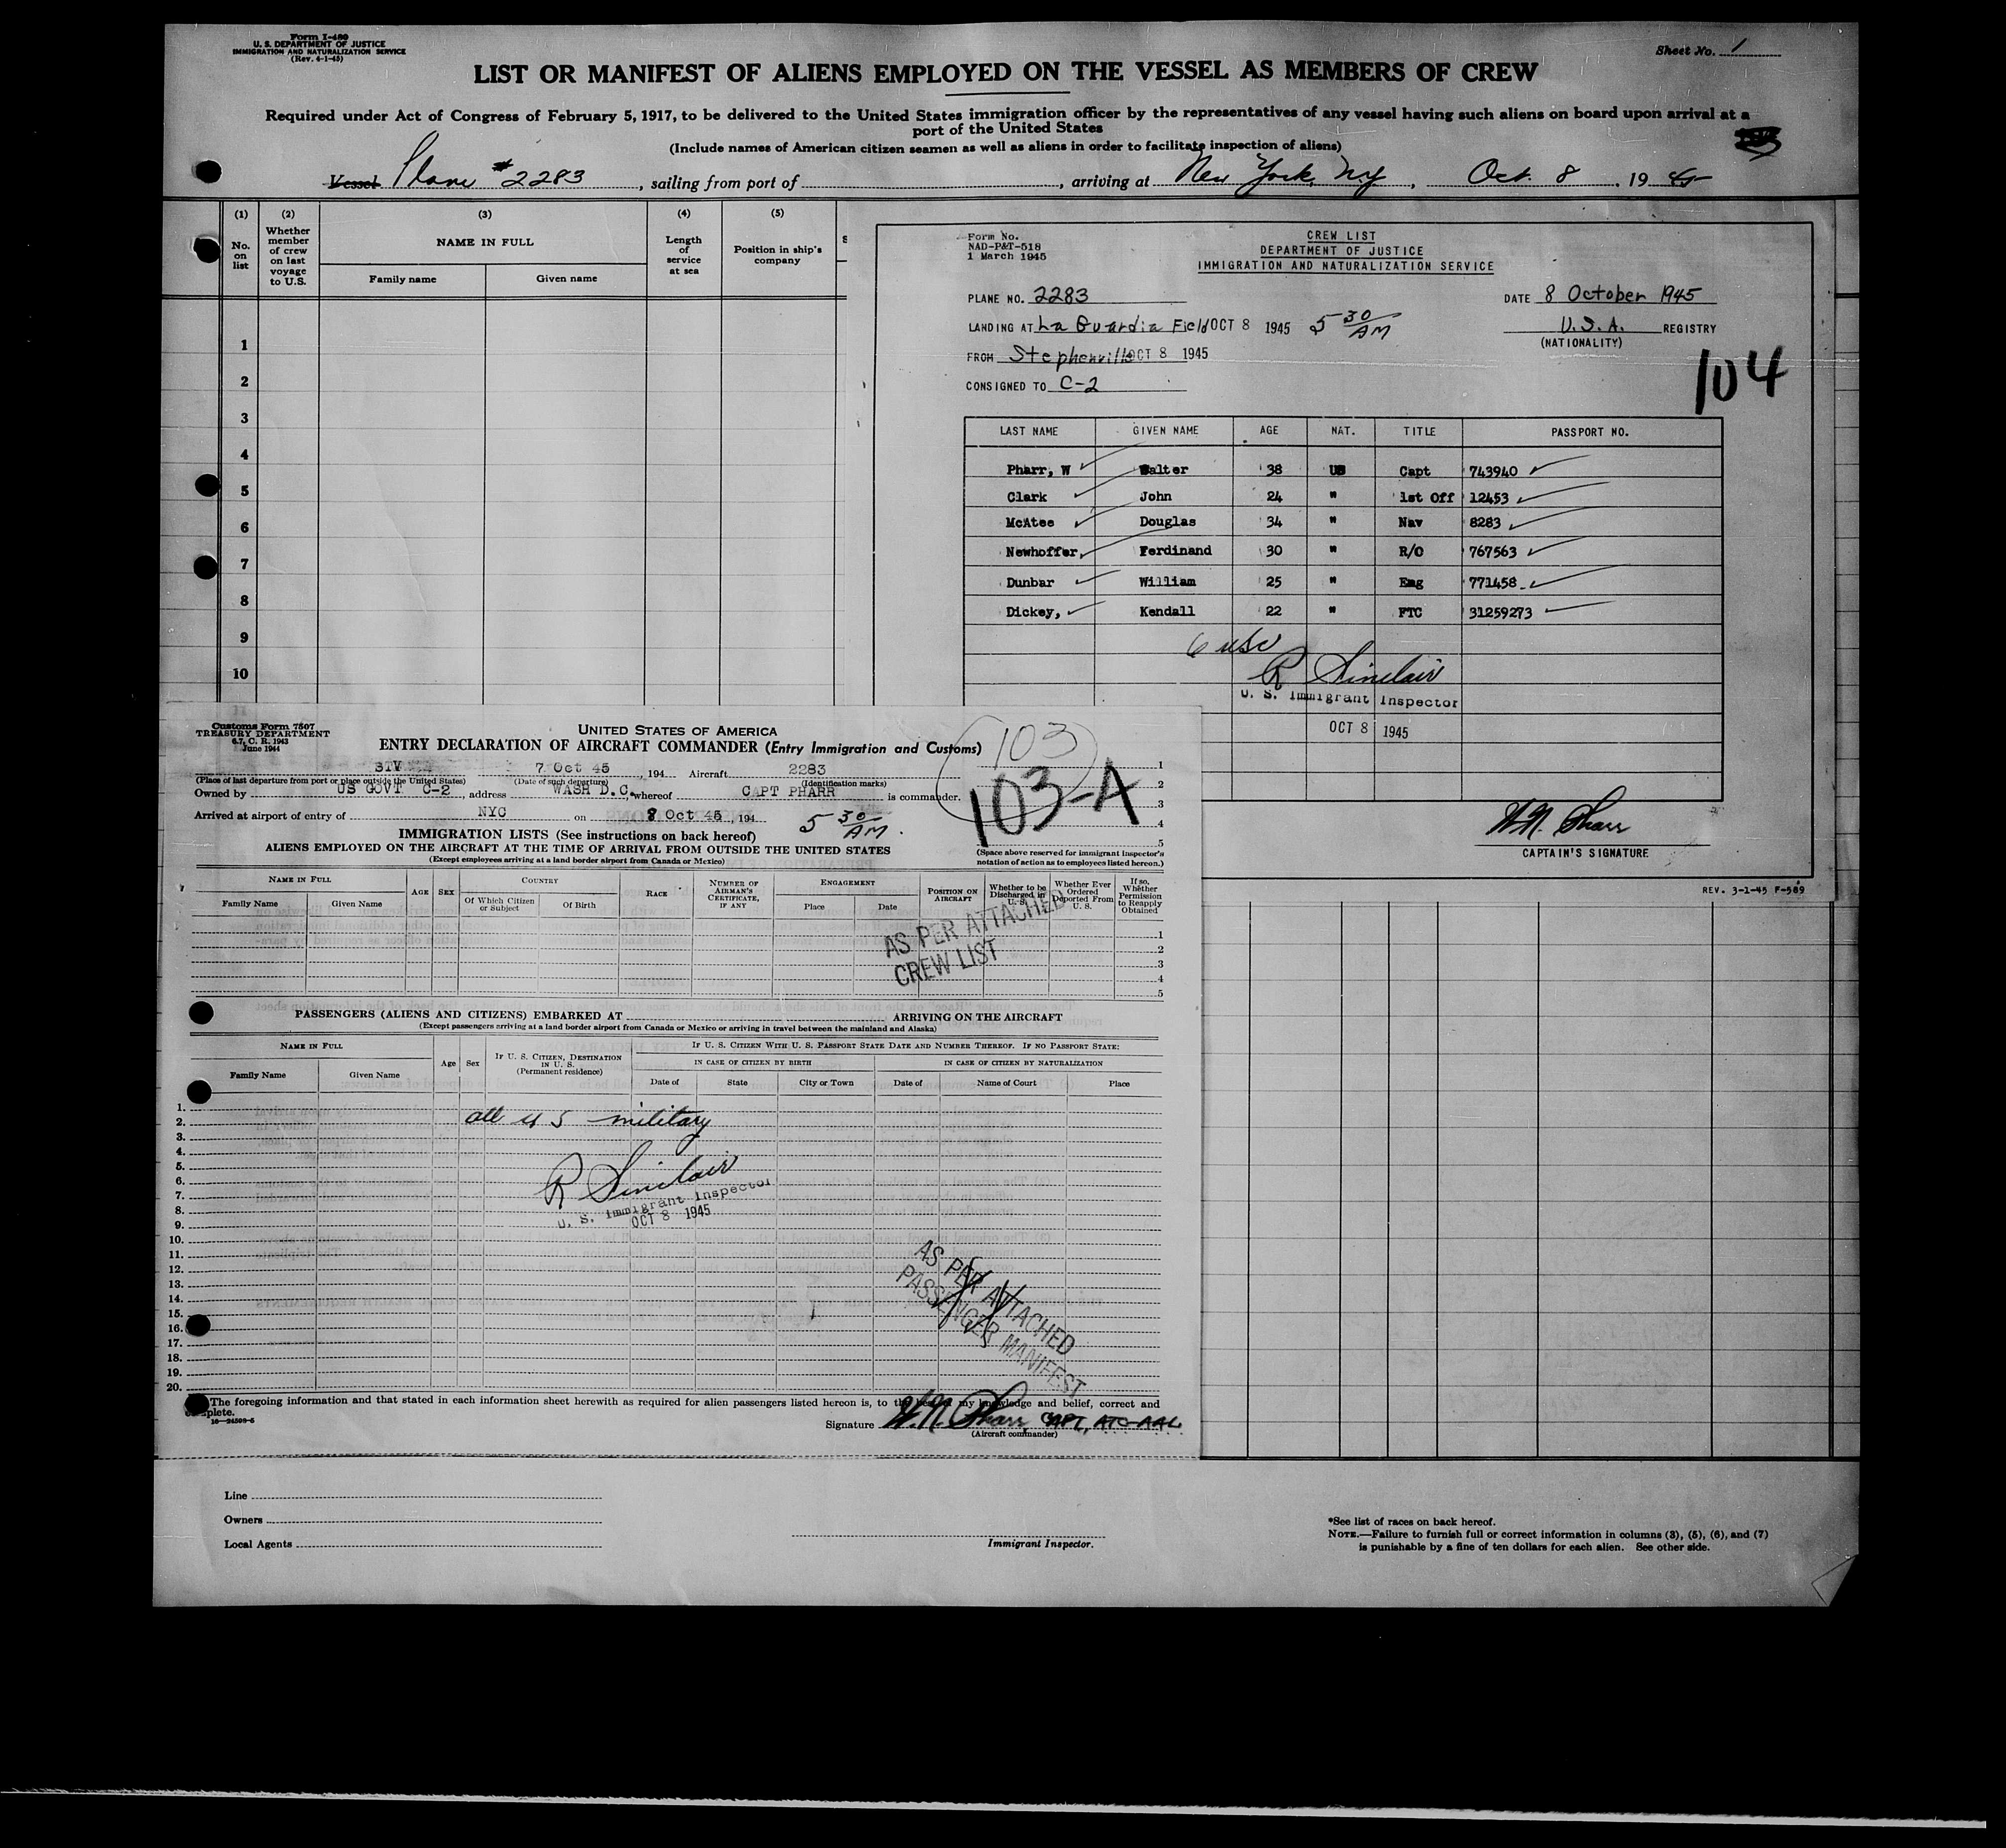 Form I-480
U. S. DEPARTMENT OF JUSTICE
IMMIGRATION AND NATURALIZATION SERVICE
(Rev. 4-1-45)
Sheet No. 1
LIST OR MANIFEST OF ALIENS EMPLOYED ON THE VESSEL AS MEMBERS OF CREW
Required under Act of Congress of February 5, 1917, to be delivered to the United States immigration officer by the representatives of any vessel having such aliens on board upon arrival at a
port of the United States
(Include names of American citizen seamen as well as aliens in order to facilitate inspection of aliens)
Vessel Plane #2283, sailing from port of , arriving at New York, N.Y., Oct. 8, 1945
(1) (2) (3) (4) (5)
No. on list
Whether member of crew on last voyage to U.S.
NAME IN FULL
Family name Given name
Length of service at sea
Position in ship's company
1
2
3
4
5
6
7
8
9
10
Form No.
NAD-P&T-518
1 March 1945
CREW LIST
DEPARTMENT OF JUSTICE
IMMIGRATION AND NATURALIZATION SERVICE
PLANE NO. 2283 DATE 8 October 1945
LANDING AT La Guardia Field OCT 8 1945 5 30/AM U.S.A. REGISTRY
(NATIONALITY)
FROM Stephenville OCT 8 1945
104
CONSIGNED TO C-2
LAST NAME GIVEN NAME AGE NAT. TITLE PASSPORT NO.
Pharr, W Walter 38 US Capt 743940
Clark John 24 " 1st Off 12453
McAtee Douglas 34 " Nav 8283
Newhoffer, Ferdinand 30 " R/O 767563
Dunbar William 25 " Eng 771458
Dickey, Kendall 22 " FTC 31259273
6 usc
R Sinclair
U. S. Immigrant Inspector
OCT 8 1945
W.N. Pharr
CAPTAIN'S SIGNATURE
REV. 3-1-45 F-589
Customs Form 7507
TREASURY DEPARTMENT
6.7, C. R. 1943
June 1944
UNITED STATES OF AMERICA
ENTRY DECLARATION OF AIRCRAFT COMMANDER (Entry Immigration and Customs)
103
103-A
STV 7 Oct 45, 194 Aircraft 2283
(Place of last departure from port or place outside the United States) (Date of such departure) (Identification marks)
Owned by US GOVT C-2, address WASH D.C. whereof CAPT PHARR is commander.
Arrived at airport of entry of NYC on 8 Oct 45, 194 5 30/AM.
1
2
3
4
5
(Space above reserved for immigrant inspector's
notation of action as to employees listed hereon.)
IMMIGRATION LISTS (See instructions on back hereof)
ALIENS EMPLOYED ON THE AIRCRAFT AT THE TIME OF ARRIVAL FROM OUTSIDE THE UNITED STATES
(Except employees arriving at a land border airport from Canada or Mexico)
NAME IN FULL
Family Name Given Name
AGE SEX
COUNTRY
Of Which Citizen or Subject Of Birth
RACE
NUMBER OF AIRMAN'S CERTIFICATE, IF ANY
ENGAGEMENT
Place Date
POSITION ON AIRCRAFT
Whether to be Discharged in U. S.
Whether Ever Ordered Deported From U. S.
If so, Whether Permission to Reapply Obtained
1
2
3
4
5
AS PER ATTACHED
CREW LIST
PASSENGERS (ALIENS AND CITIZENS) EMBARKED AT ARRIVING ON THE AIRCRAFT
(Except passengers arriving at a land border airport from Canada or Mexico or arriving in travel between the mainland and Alaska)
NAME IN FULL
Family Name Given Name
Age Sex
IF U. S. CITIZEN, DESTINATION IN U. S.
(Permanent residence)
IF U. S. CITIZEN WITH U. S. PASSPORT STATE DATE AND NUMBER THEREOF. IF NO PASSPORT STATE:
IN CASE OF CITIZEN BY BIRTH IN CASE OF CITIZEN BY NATURALIZATION
Date of State City or Town Date of Name of Court Place
1.
2.
3.
4.
5.
6.
7.
8.
9.
10.
11.
12.
13.
14.
15.
16.
17.
18.
19.
20.
all U S military
R Sinclair
U. S. Immigrant Inspector
OCT 8 1945
AS PER ATTACHED
PASSENGER MANIFEST
The foregoing information and that stated in each information sheet herewith as required for alien passengers listed hereon is, to the best of my knowledge and belief, correct and
complete.
Signature W.N. Pharr, CAPT, ATC-AAL
(Aircraft commander)
Line
Owners
Local Agents
Immigrant Inspector.
*See list of races on back hereof.
NOTE.—Failure to furnish full or correct information in columns (3), (5), (6), and (7)
is punishable by a fine of ten dollars for each alien. See other side.